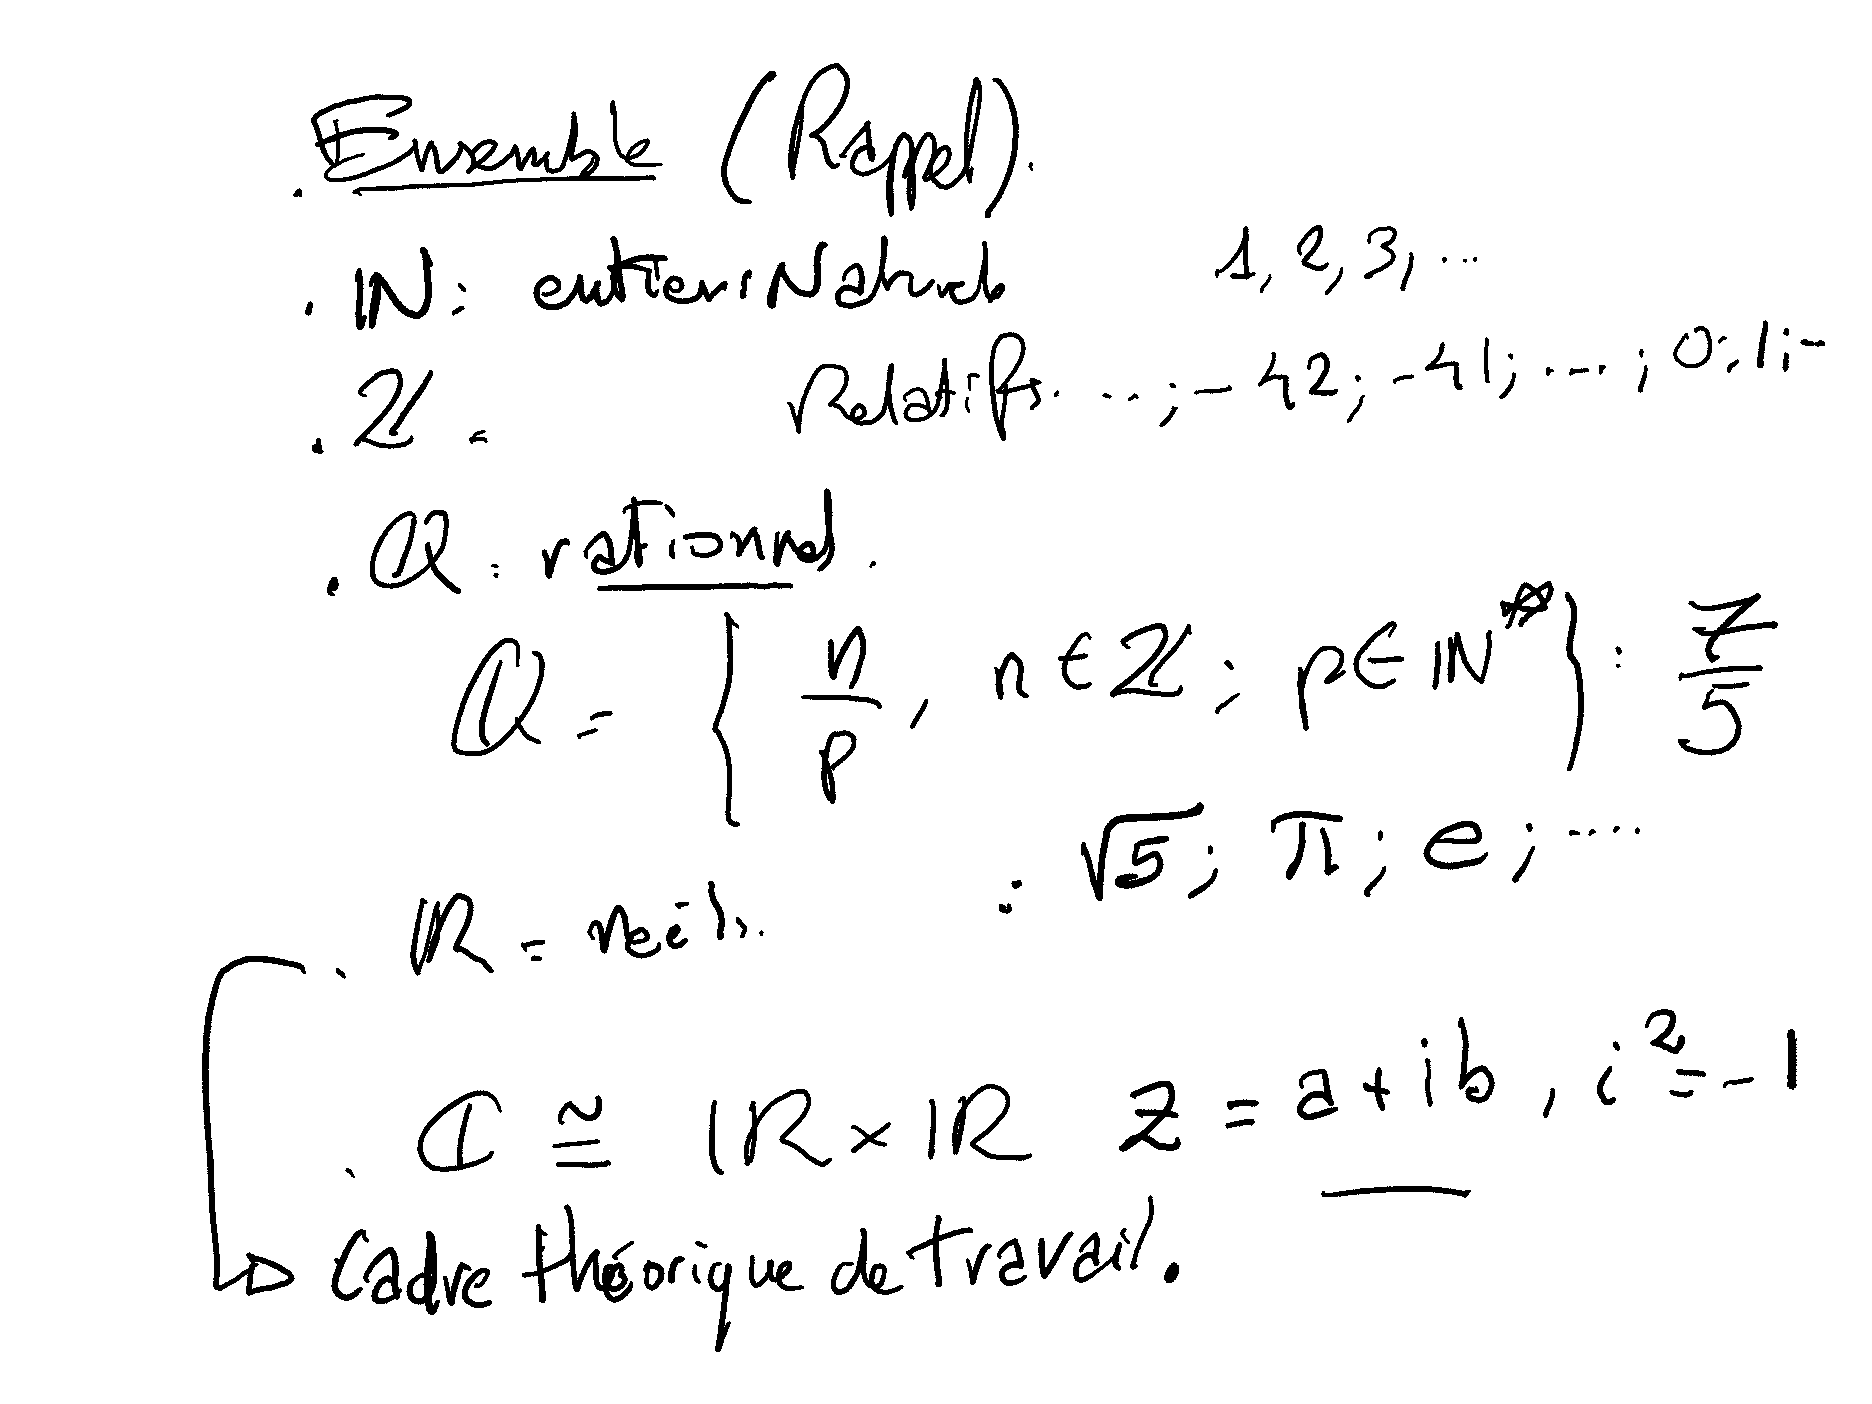 . Ensemble (Rappel).
. ℕ : entiers Naturels 1, 2, 3, ...
. ℤ = Relatifs. ...; -42; -41; ...; 0; 1; ...
. ℚ : rationnel.
ℚ = { n/p , n ∈ ℤ ; p ∈ ℕ* } : 7/5
. ℝ = réels. : √5 ; π ; e ; ....
. ℂ ≅ ℝ × ℝ z = a + ib , i² = -1
→ Cadre théorique de travail.